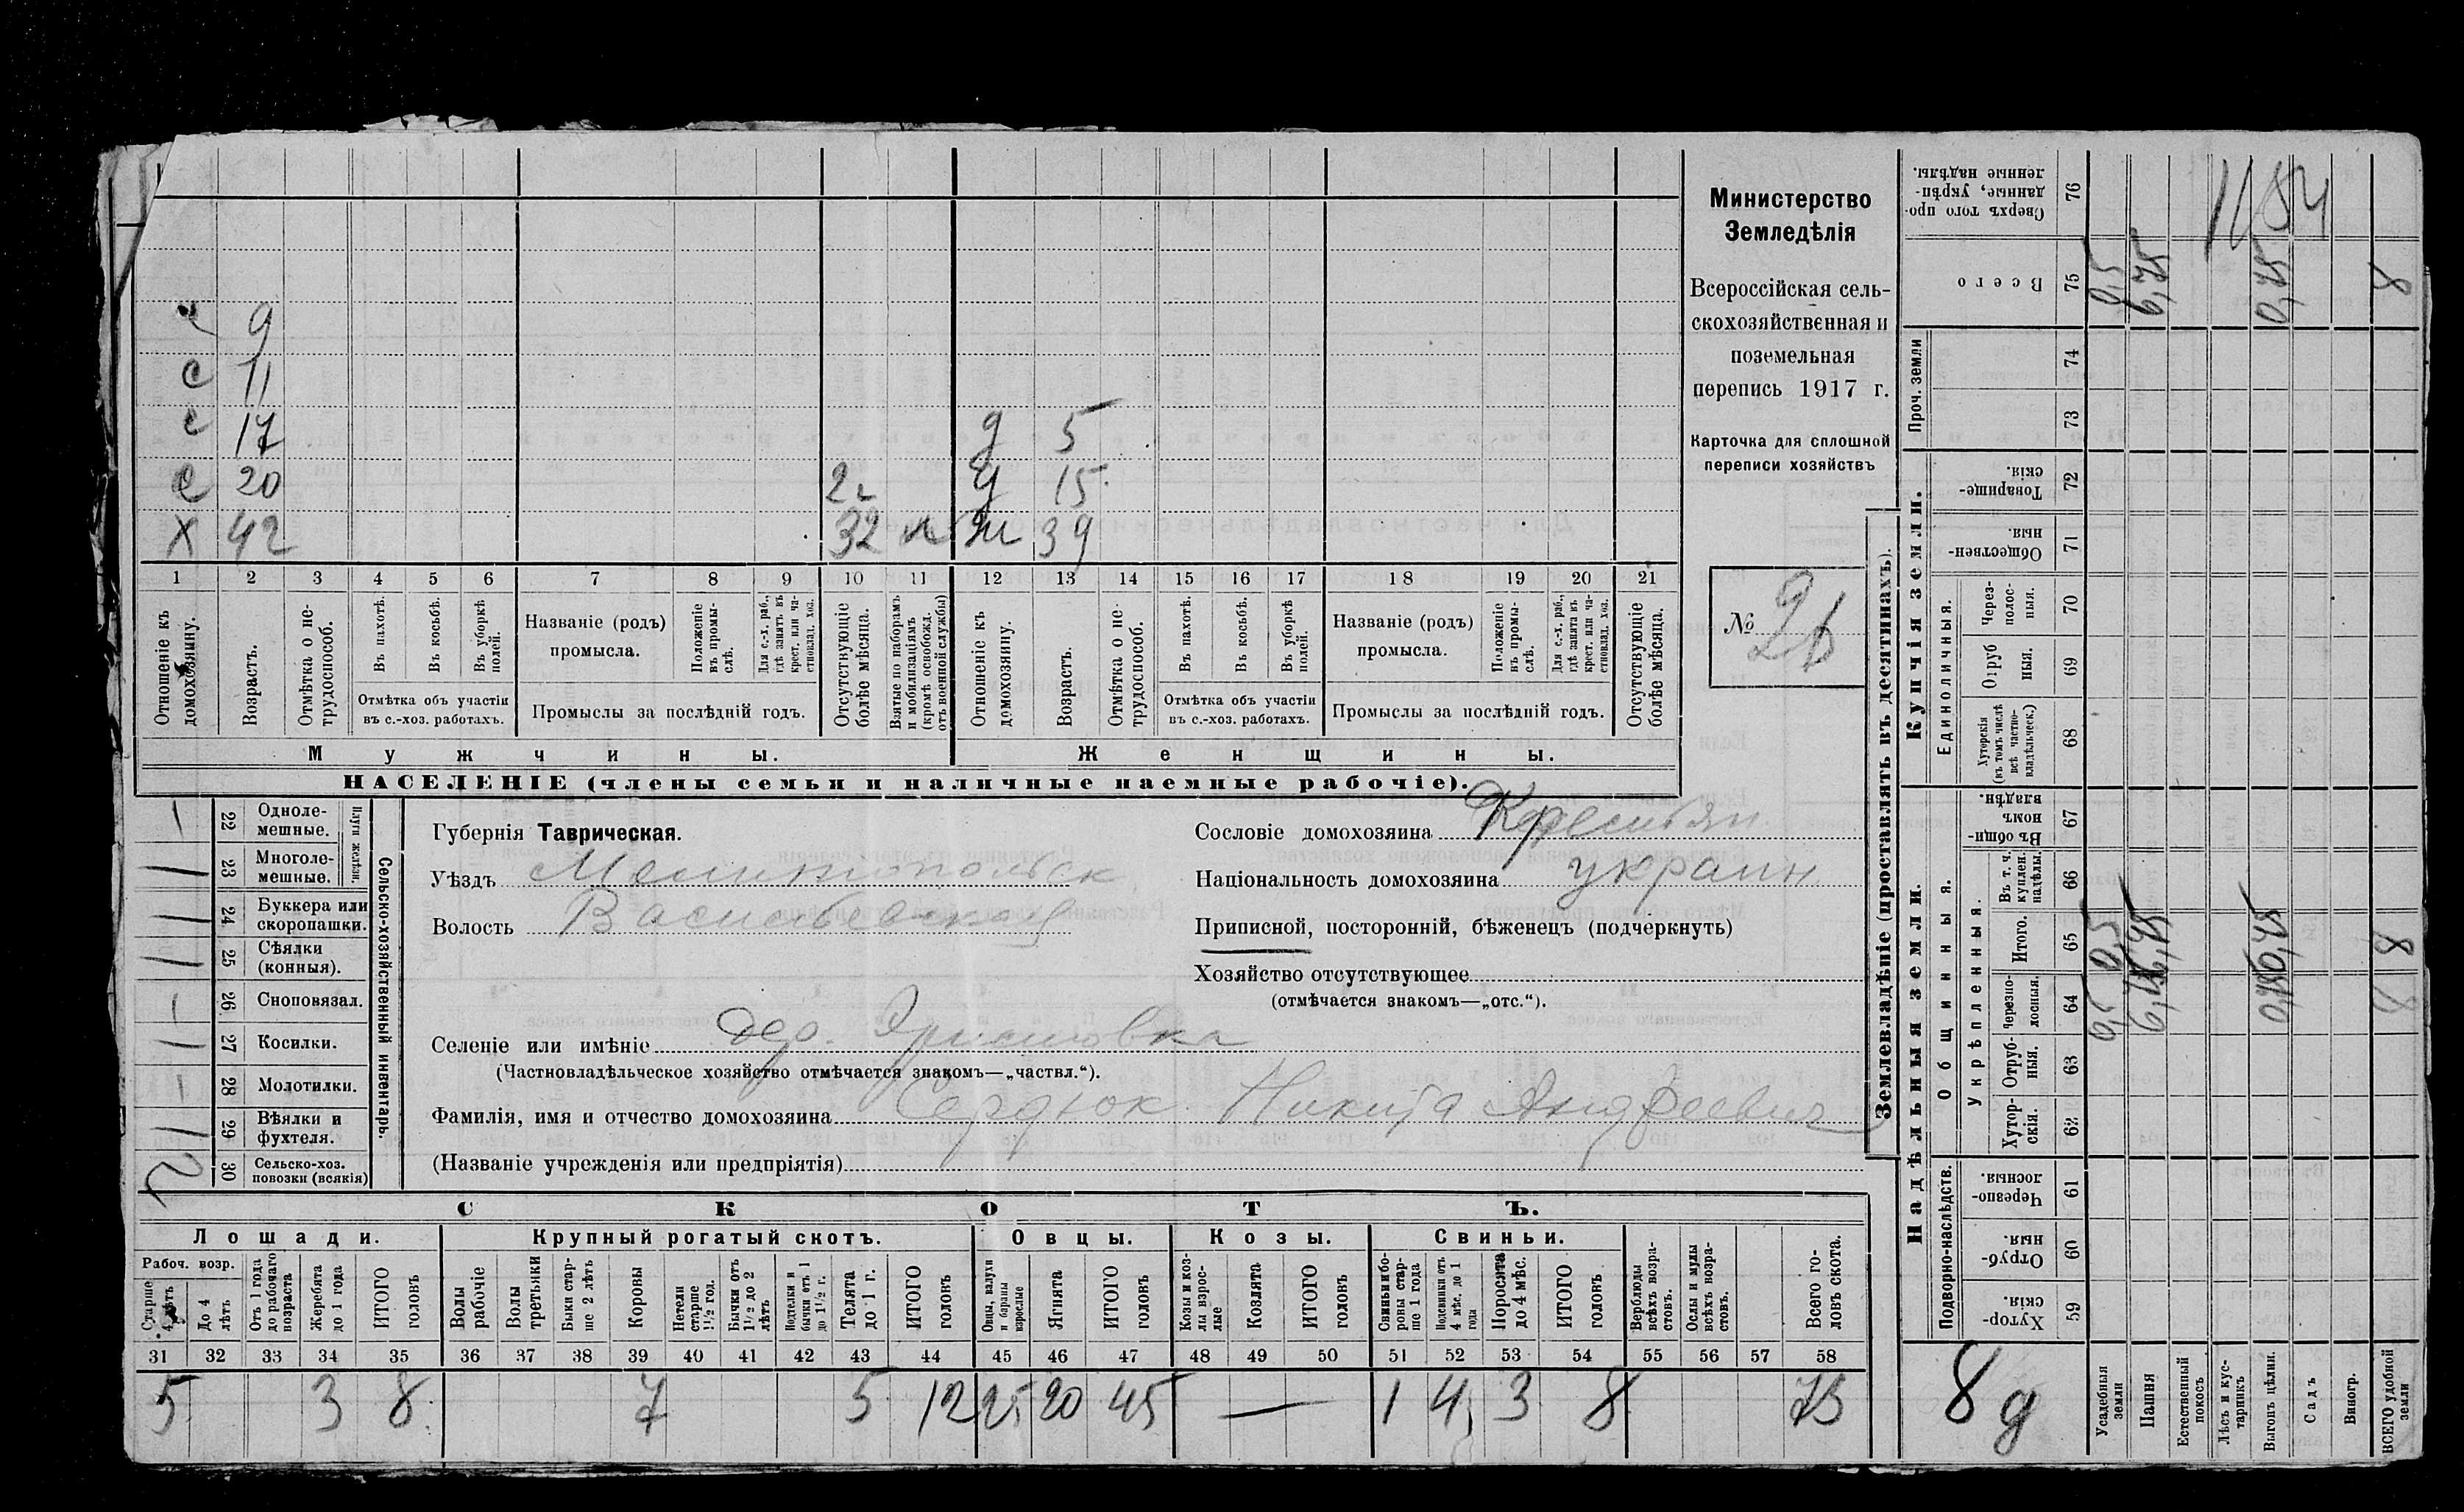 Министерство
Земледѣлія
Всероссійская сель-
скохозяйственная и
поземельная
перепись 1917 г.
Карточка для сплошной
переписи хозяйствъ
№ 26
9
с 11
с 17 д 5
с 20 2 д 15
х 42 32 ж 39
1 2 3 4 5 6 7 8 9 10 11 12 13 14 15 16 17 18 19 20 21
Отношеніе къ домохозяину.
Возрастъ.
Отмѣтка о не-трудоспособ.
Въ пахотѣ.
Въ косьбѣ.
Въ уборкѣ полей.
Отмѣтка объ участіи
въ с.-хоз. работахъ.
Названіе (родъ)
промысла.
Положеніе въ промы-слѣ.
Для с.-х. раб., гдѣ занятъ въ крест. или ча-стновлад. хоз.
Промыслы за послѣдній годъ.
Отсутствующіе болѣе мѣсяца.
Взятые по наборамъ и мобилизаціямъ (кромѣ освобожд. отъ военной службы)
Отношеніе къ домохозяину.
Возрастъ.
Отмѣтка о не-трудоспособ.
Въ пахотѣ.
Въ косьбѣ.
Въ уборкѣ полей.
Отмѣтка объ участіи
въ с.-хоз. работахъ.
Названіе (родъ)
промысла.
Положеніе въ промы-слѣ.
Для с.-х. раб., гдѣ занята въ крест. или ча-стновлад. хоз.
Промыслы за послѣдній годъ.
Отсутствующіе болѣе мѣсяца.
Мужчины. Женщины.
НАСЕЛЕНІЕ (члены семьи и наличные наемные рабочіе).
Сельско-хозяйственный инвентарь.
Плуги желѣзн.
1 22 Однолемешные.
1 23 Многолемешные.
1 24 Буккера или скоропашки.
1 25 Сѣялки (конныя).
1 26 Сноповязал.
1 27 Косилки.
1 28 Молотилки.
1 29 Вѣялки и фухтеля.
2 30 Сельско-хоз. повозки (всякія)
Губернія Таврическая.
Уѣздъ Мелитопольск
Волость Васильевская
Сословіе домохозяина Крестьян.
Національность домохозяина украин
Приписной, посторонній, бѣженецъ (подчеркнуть)
Хозяйство отсутствующее
(отмѣчается знакомъ—„отс.“).
Селеніе или имѣніе дер.
(Частновладѣльческое хозяйство отмѣчается знакомъ—„частвл.“).
Фамилія, имя и отчество домохозяина Сердюк Никита Андреевич
(Названіе учрежденія или предпріятія)
СКОТЪ.
Лошади. Крупный рогатый скотъ. Овцы. Козы. Свиньи.
Рабоч. возр.
Старше 4 лѣтъ
До 4 лѣтъ
Отъ 1 года до рабочаго возраста
Жеребята до 1 года
ИТОГО головъ
Волы рабочіе
Волы третьяки
Быки стар-ше 2 лѣтъ
Коровы
Нетели старше 1½ год.
Бычки отъ 1½ до 2 лѣтъ
Подтелки и бычки отъ 1 до 1½ г.
Телята до 1 г.
ИТОГО головъ
Овцы, валухи и бараны взрослые
Ягнята
ИТОГО головъ
Козы и коз-лы взрос-лые
Козлята
ИТОГО головъ
Свиньи и бо-ровы стар-ше 1 года
Подсвинки отъ 4 мѣс. до 1 года
Поросята до 4 мѣс.
ИТОГО головъ
Верблюды всѣхъ возра-стовъ.
Ослы и мулы всѣхъ возра-стовъ.
Всего го-ловъ скота.
31 32 33 34 35 36 37 38 39 40 41 42 43 44 45 46 47 48 49 50 51 52 53 54 55 56 57 58
5 3 8 7 5 12 25 20 45 — 1 4 3 8 73
Землевладѣніе (проставлять въ десятинахъ).
Надѣльныя земли.
Купчія земли.
Проч. земли
Подворно-наслѣдств.
Общинныя.
Укрѣпленныя.
Единоличныя.
Хутор-скія. 59
Отруб-ныя. 60
Черезпо-лосныя. 61
Хутор-скія. 62
Отруб-ныя. 63
Черезпо-лосныя. 64
Итого. 65
Въ т. ч. куплен. надѣлы. 66
Въ общин-номъ владѣн. 67
Хуторскія (въ томъ числѣ всѣ частно-владѣльческ.) 68
Отруб ныя. 69
Через-полос-ныя. 70
Обществен-ныя. 71
Товарище-скія. 72
73
74
Всего 75
Сверхъ того про-данные, укрѣп-ленные надѣлы. 76
8 д
Усадебныя земли 0,5 0,5 0,5
Пашня 6,75 6,75 6,75
Естественный покосъ
Лѣсъ и кус-тарникъ
Выгонъ цѣлин. 0,75 0,75 0,75
Садъ
Виногр.
ВСЕГО удобной земли 8 8 8
1184